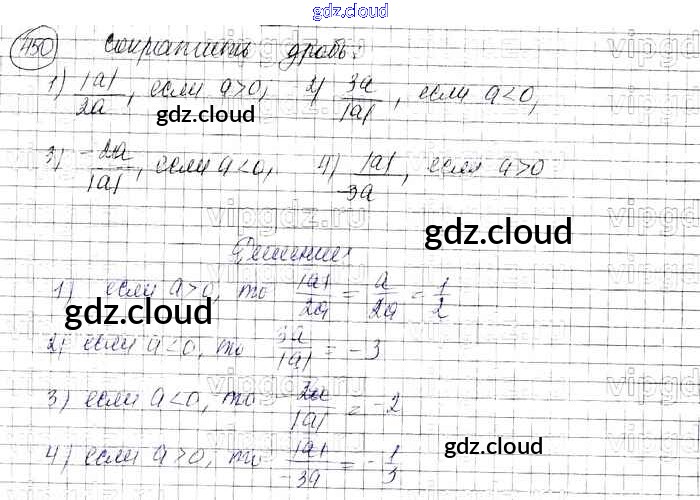 gdz.cloud
450 Сократить дробь:
1) |a|/2a, если a>0, 2) 3a/|a|, если a<0,
gdz.cloud
3) -2a/|a|, если a<0, 4) |a|/-3a, если a>0
vipgdz.ru
gdz.cloud
Решение:
1) если a>0, то |a|/2a = a/2a = 1/2
gdz.cloud
2) если a<0, то 3a/|a| = -3
3) если a<0, то -2a/|a| = -2
4) если a>0, то |a|/-3a = -1/3
gdz.cloud